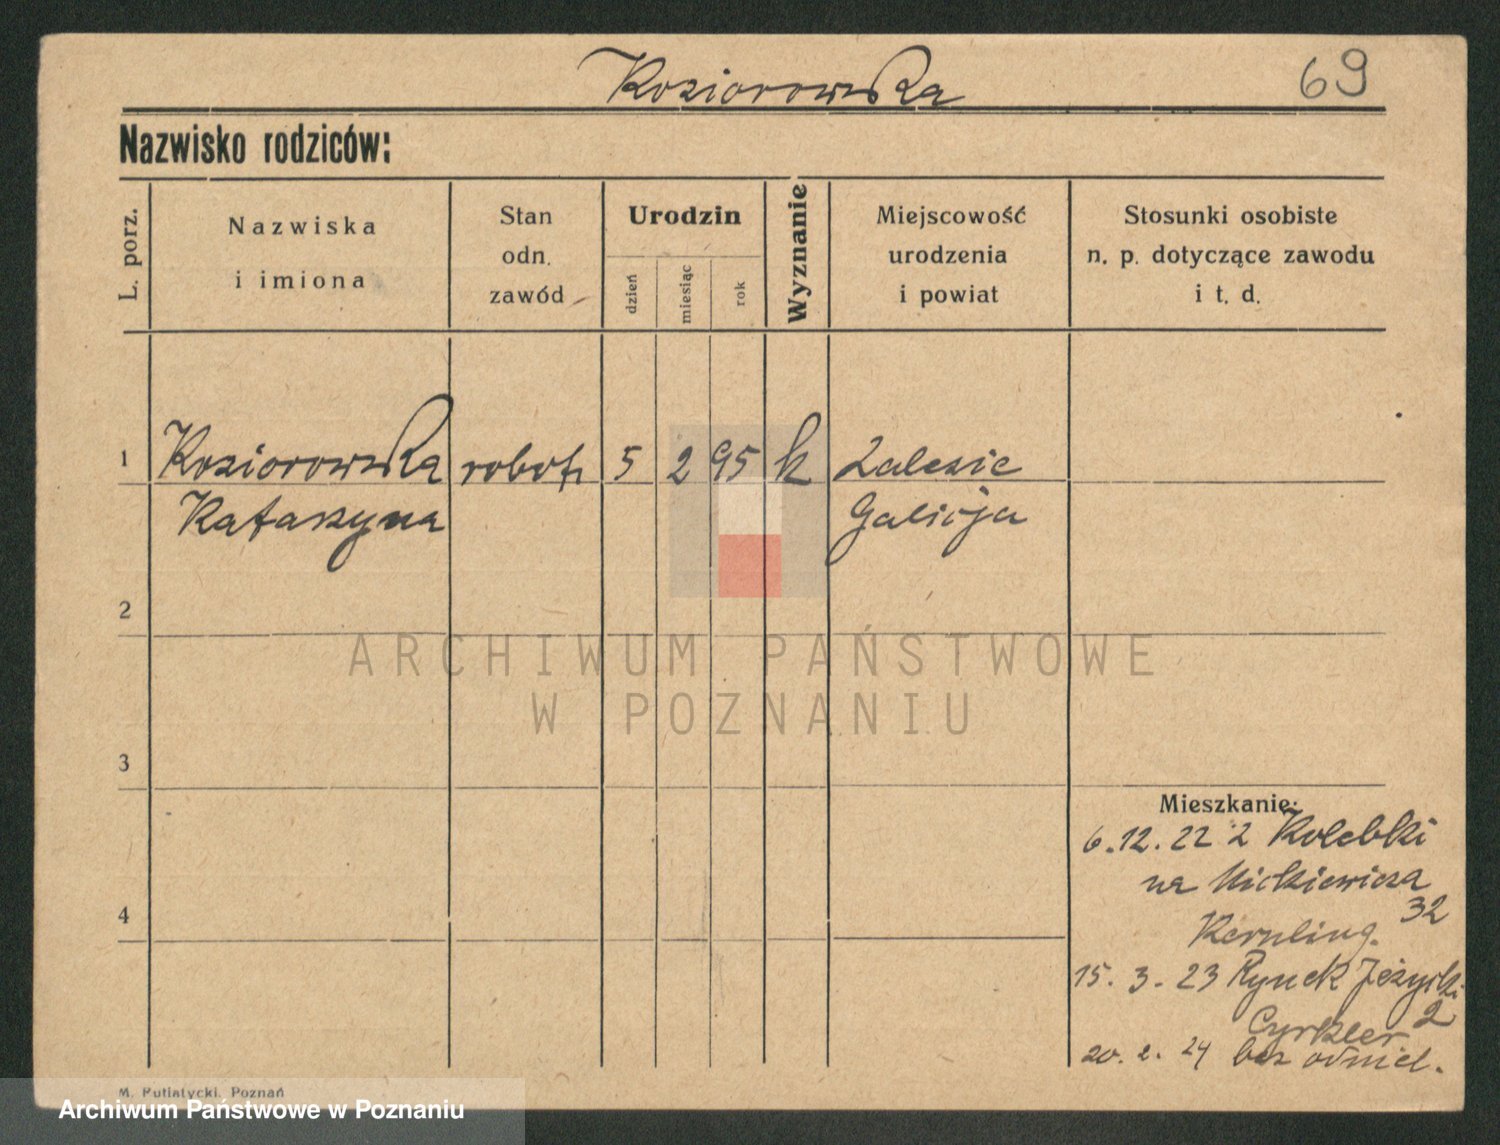 Koziorowska
69
Nazwisko rodziców:
L. porz.
Nazwiska
i imiona
Stan
odn.
zawód
Urodzin
dzień
miesiąc
rok
Wyznanie
Miejscowość
urodzenia
i powiat
Stosunki osobiste
n. p. dotyczące zawodu
i t. d.
1 Koziorowska robotn 5 2 95 k Zalesie
Katarzyna Galicja
2
ARCHIWUM PAŃSTWOWE
W POZNANIU
3
Mieszkanie:
6.12.22 z Kolebki
na Mickiewicza
32
Kernling.
15. 3. 23 Rynek Jeżycki
2
Cyrkler
20. 2. 24 bez odmel.
4
M. Putiatycki, Poznań
Archiwum Państwowe w Poznaniu